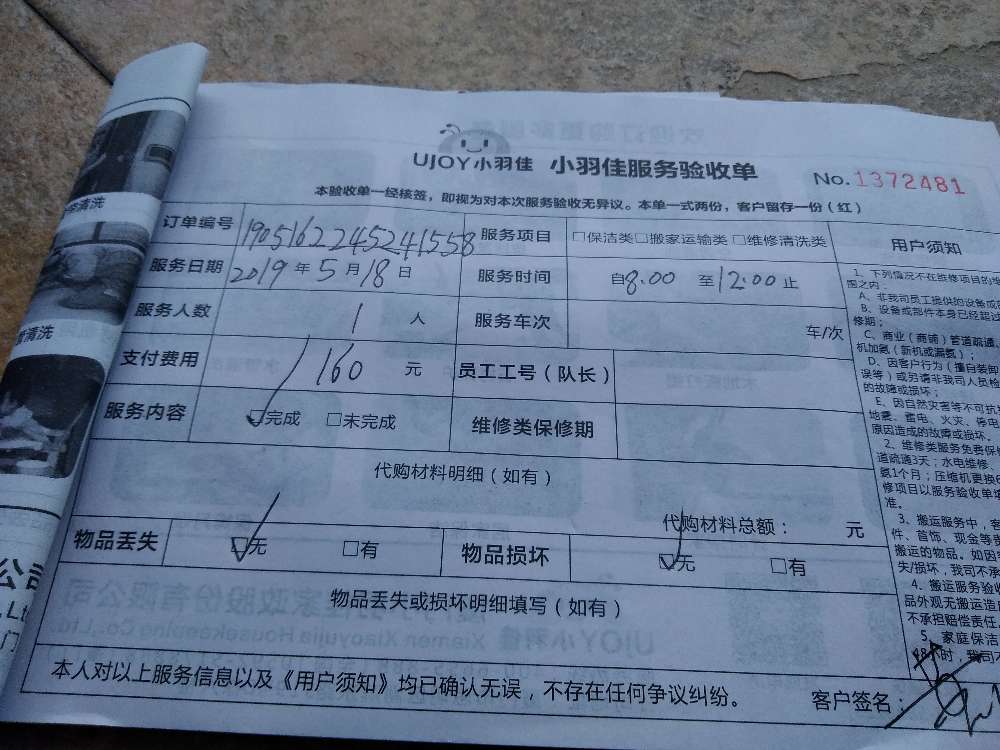 UJOY小羽佳 小羽佳服务验收单 No.1372481
本验收单一经核签，即视为对本次服务验收无异议。本单一式两份，客户留存一份（红）
订单编号 1905162245241558 服务项目 □保洁类□搬家运输类□维修清洗类
服务日期 2019年5月18日 服务时间 自8:00 至12:00止
服务人数 1 人 服务车次 车/次
支付费用 160 元 员工工号（队长）
服务内容 ☑完成 □未完成 维修类保修期
代购材料明细（如有）
代购材料总额： 元
物品丢失 ☑无 □有 物品损坏 ☑无 □有
物品丢失或损坏明细填写（如有）
本人对以上服务信息以及《用户须知》均已确认无误，不存在任何争议纠纷。 客户签名：
用户须知
1、下列情况不在维修项目的
围之内：
A、非我司员工提供的设备或
B、设备或部件本身已经超过
修期；
C、商业（商铺）管道疏通、
机加氨（新机或漏氨）；
D、因客户行为（擅自装卸
误等）或另请非我司人员检
的故障或损坏；
E、因自然灾害等不可抗
地震、雷电、火灾、停电
原因造成的故障或损坏。
2、维修类服务免费保
道疏通3天；水电维修、
氨1个月；压缩机更换
修项目以服务验收单填
准。
3、搬运服务中，客
件、首饰、现金等贵
搬运的物品。如因
失/损坏，我司不承
4、搬运服务验收
品外观无搬运造
不承担赔偿责任。
5、家庭保洁
时，我司不
清洗
清洗
公司
门